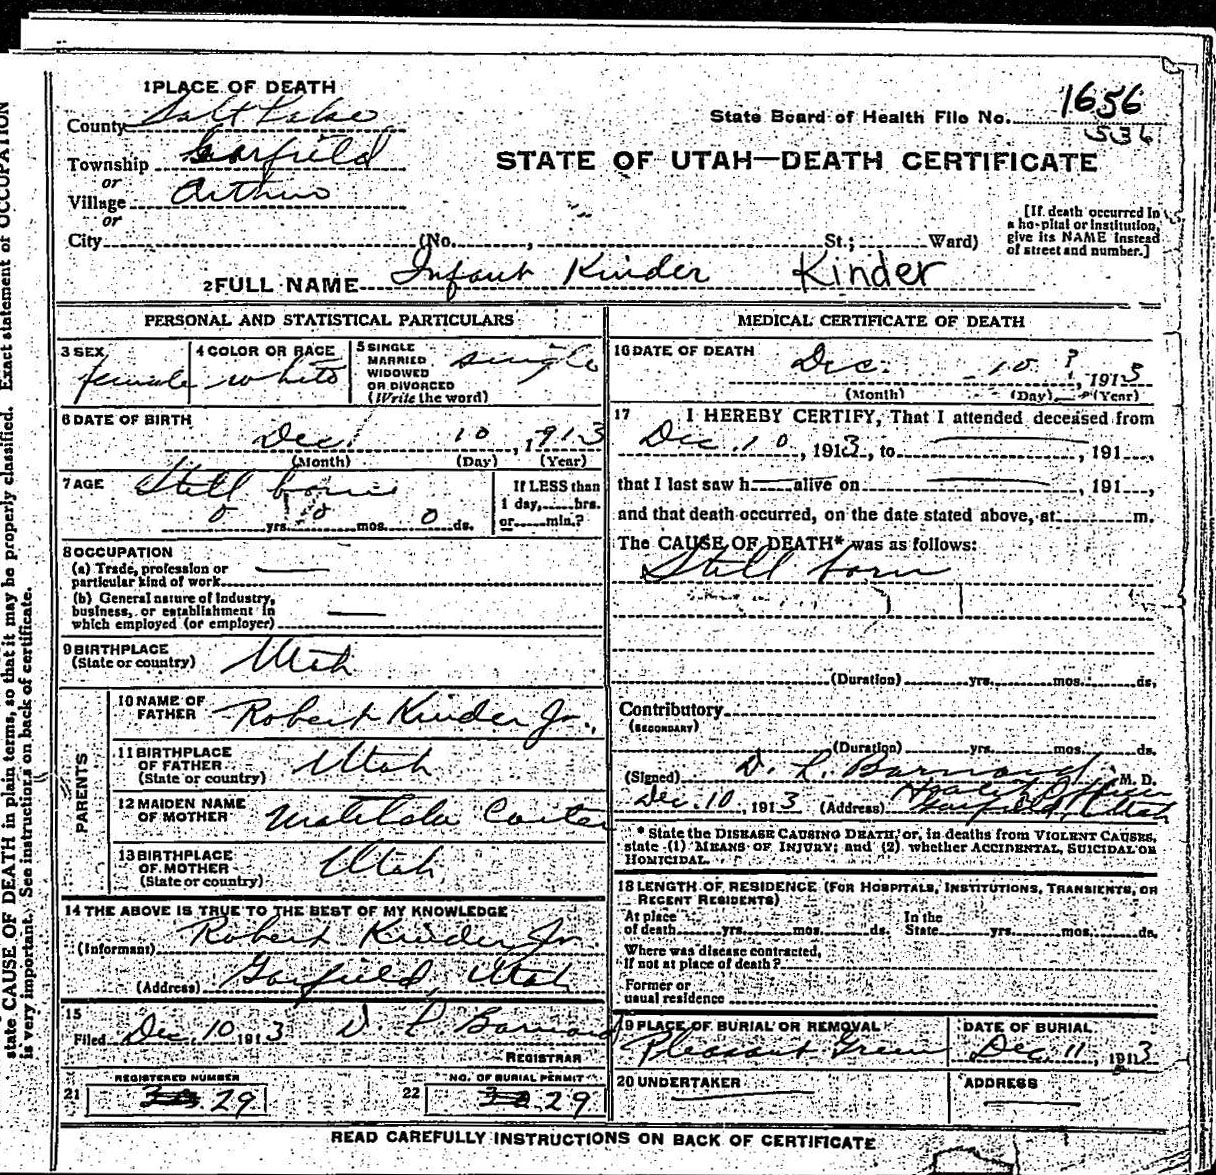 state CAUSE OF DEATH in plain terms, so that it may be properly classified. Exact statement of OCCUPATION
is very important. See instructions on back of certificate.
1 PLACE OF DEATH
County Salt Lake
State Board of Health File No. 1656
536
Township Garfield
or
STATE OF UTAH—DEATH CERTIFICATE
Village Arthur
or
City (No. , St.; Ward)
[If death occurred in a hospital or institution, give its NAME instead of street and number.]
2 FULL NAME Infant Kinder Kinder
PERSONAL AND STATISTICAL PARTICULARS
3 SEX female
4 COLOR OR RACE white
5 SINGLE MARRIED WIDOWED OR DIVORCED (Write the word) single
6 DATE OF BIRTH
Dec. 10, 1913
(Month) (Day) (Year)
7 AGE Still born
0 yrs. 0 mos. 0 ds.
If LESS than 1 day, hrs. or min.?
8 OCCUPATION
(a) Trade, profession or particular kind of work
(b) General nature of Industry, business, or establishment in which employed (or employer)
9 BIRTHPLACE (State or country) Utah
PARENTS
10 NAME OF FATHER Robert Kinder Jr.
11 BIRTHPLACE OF FATHER (State or country) Utah
12 MAIDEN NAME OF MOTHER Matilda Coster
13 BIRTHPLACE OF MOTHER (State or country) Utah
14 THE ABOVE IS TRUE TO THE BEST OF MY KNOWLEDGE
(Informant) Robert Kinder Jr.
(Address) Garfield, Utah
15
Filed Dec. 10 1913 D. L. Barnard
REGISTRAR
REGISTERED NUMBER
21 29
NO. OF BURIAL PERMIT
22 29
MEDICAL CERTIFICATE OF DEATH
16 DATE OF DEATH
Dec. 10 ?, 1913
(Month) (Day) (Year)
17 I HEREBY CERTIFY, That I attended deceased from
Dec 10, 1913, to , 191 ,
that I last saw h alive on , 191 ,
and that death occurred, on the date stated above, at m.
The CAUSE OF DEATH* was as follows:
Still born
(Duration) yrs. mos. ds.
Contributory
(SECONDARY)
(Duration) yrs. mos. ds.
(Signed) D. L. Barnard, M. D.
Health Officer
Dec. 10, 1913 (Address) Garfield, Utah
* State the DISEASE CAUSING DEATH, or, in deaths from VIOLENT CAUSES,
state (1) MEANS OF INJURY; and (2) whether ACCIDENTAL, SUICIDAL OR
HOMICIDAL.
18 LENGTH OF RESIDENCE (FOR HOSPITALS, INSTITUTIONS, TRANSIENTS, OR
RECENT RESIDENTS)
At place of death yrs. mos. ds. In the State yrs. mos. ds.
Where was disease contracted,
If not at place of death?
Former or
usual residence
19 PLACE OF BURIAL OR REMOVAL
Pleasant Green
DATE OF BURIAL
Dec. 11, 1913
20 UNDERTAKER
ADDRESS
READ CAREFULLY INSTRUCTIONS ON BACK OF CERTIFICATE